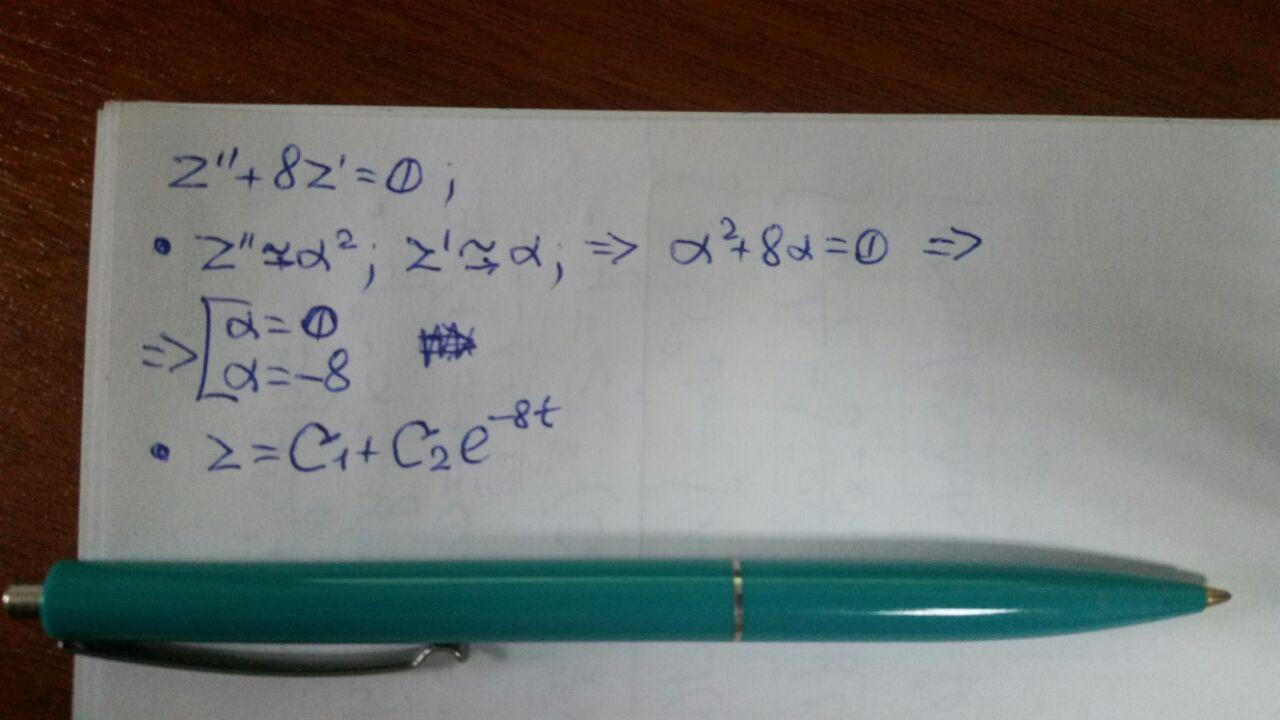 z'' + 8z' = 0 ;
• z'' ≈ α² ; z' ≈ α ; => α² + 8α = 0 =>
=> [ α = 0
α = -8
• z = C₁ + C₂e⁻⁸ᵗ